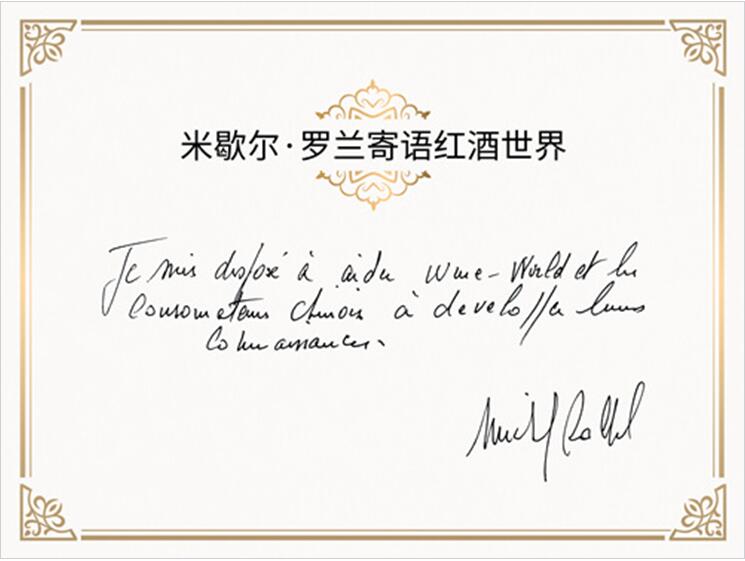 米歇尔·罗兰寄语红酒世界
Je suis disposé à aider Wine-World et les
consomateurs chinois à developper leurs
connaissances.
Michel Rolland